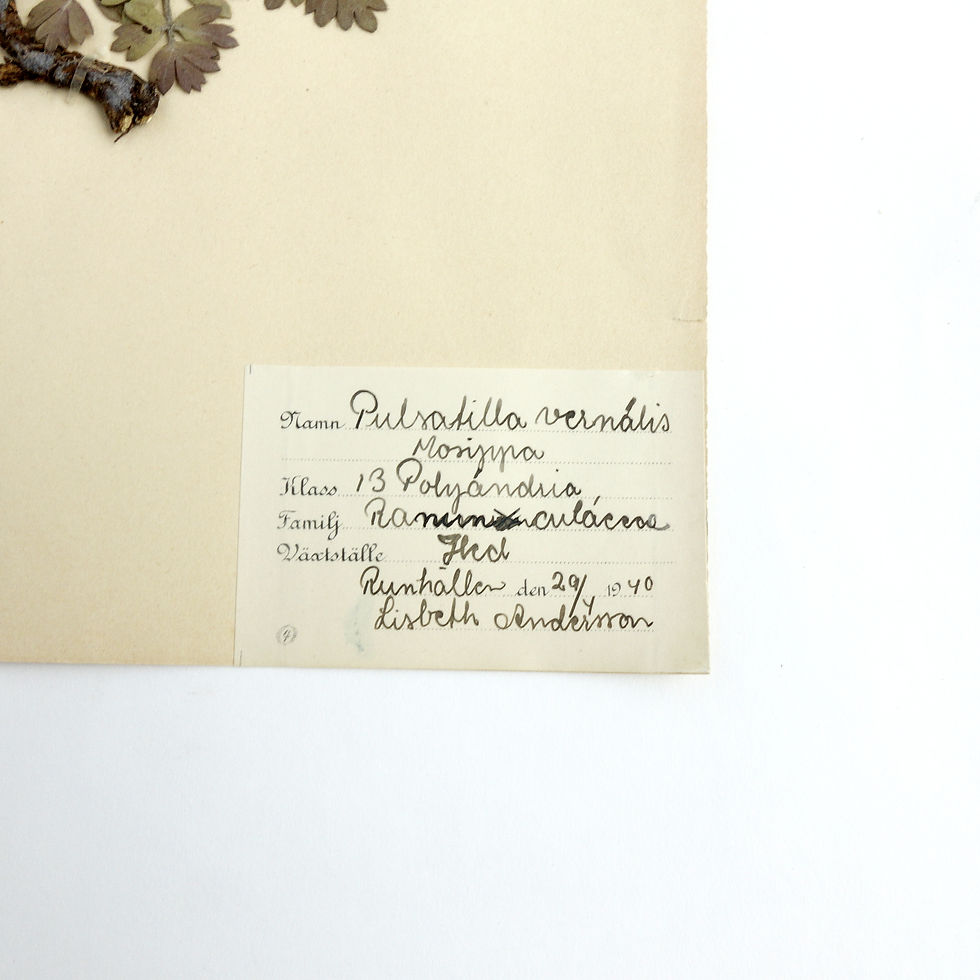 Namn Pulsatilla vernális
Mosippa
Klass 13 Polyándria
Familj Ranunculáceae
Växtställe Hed
Runhällen den 29/4 1940
Lisbeth Andersson
4